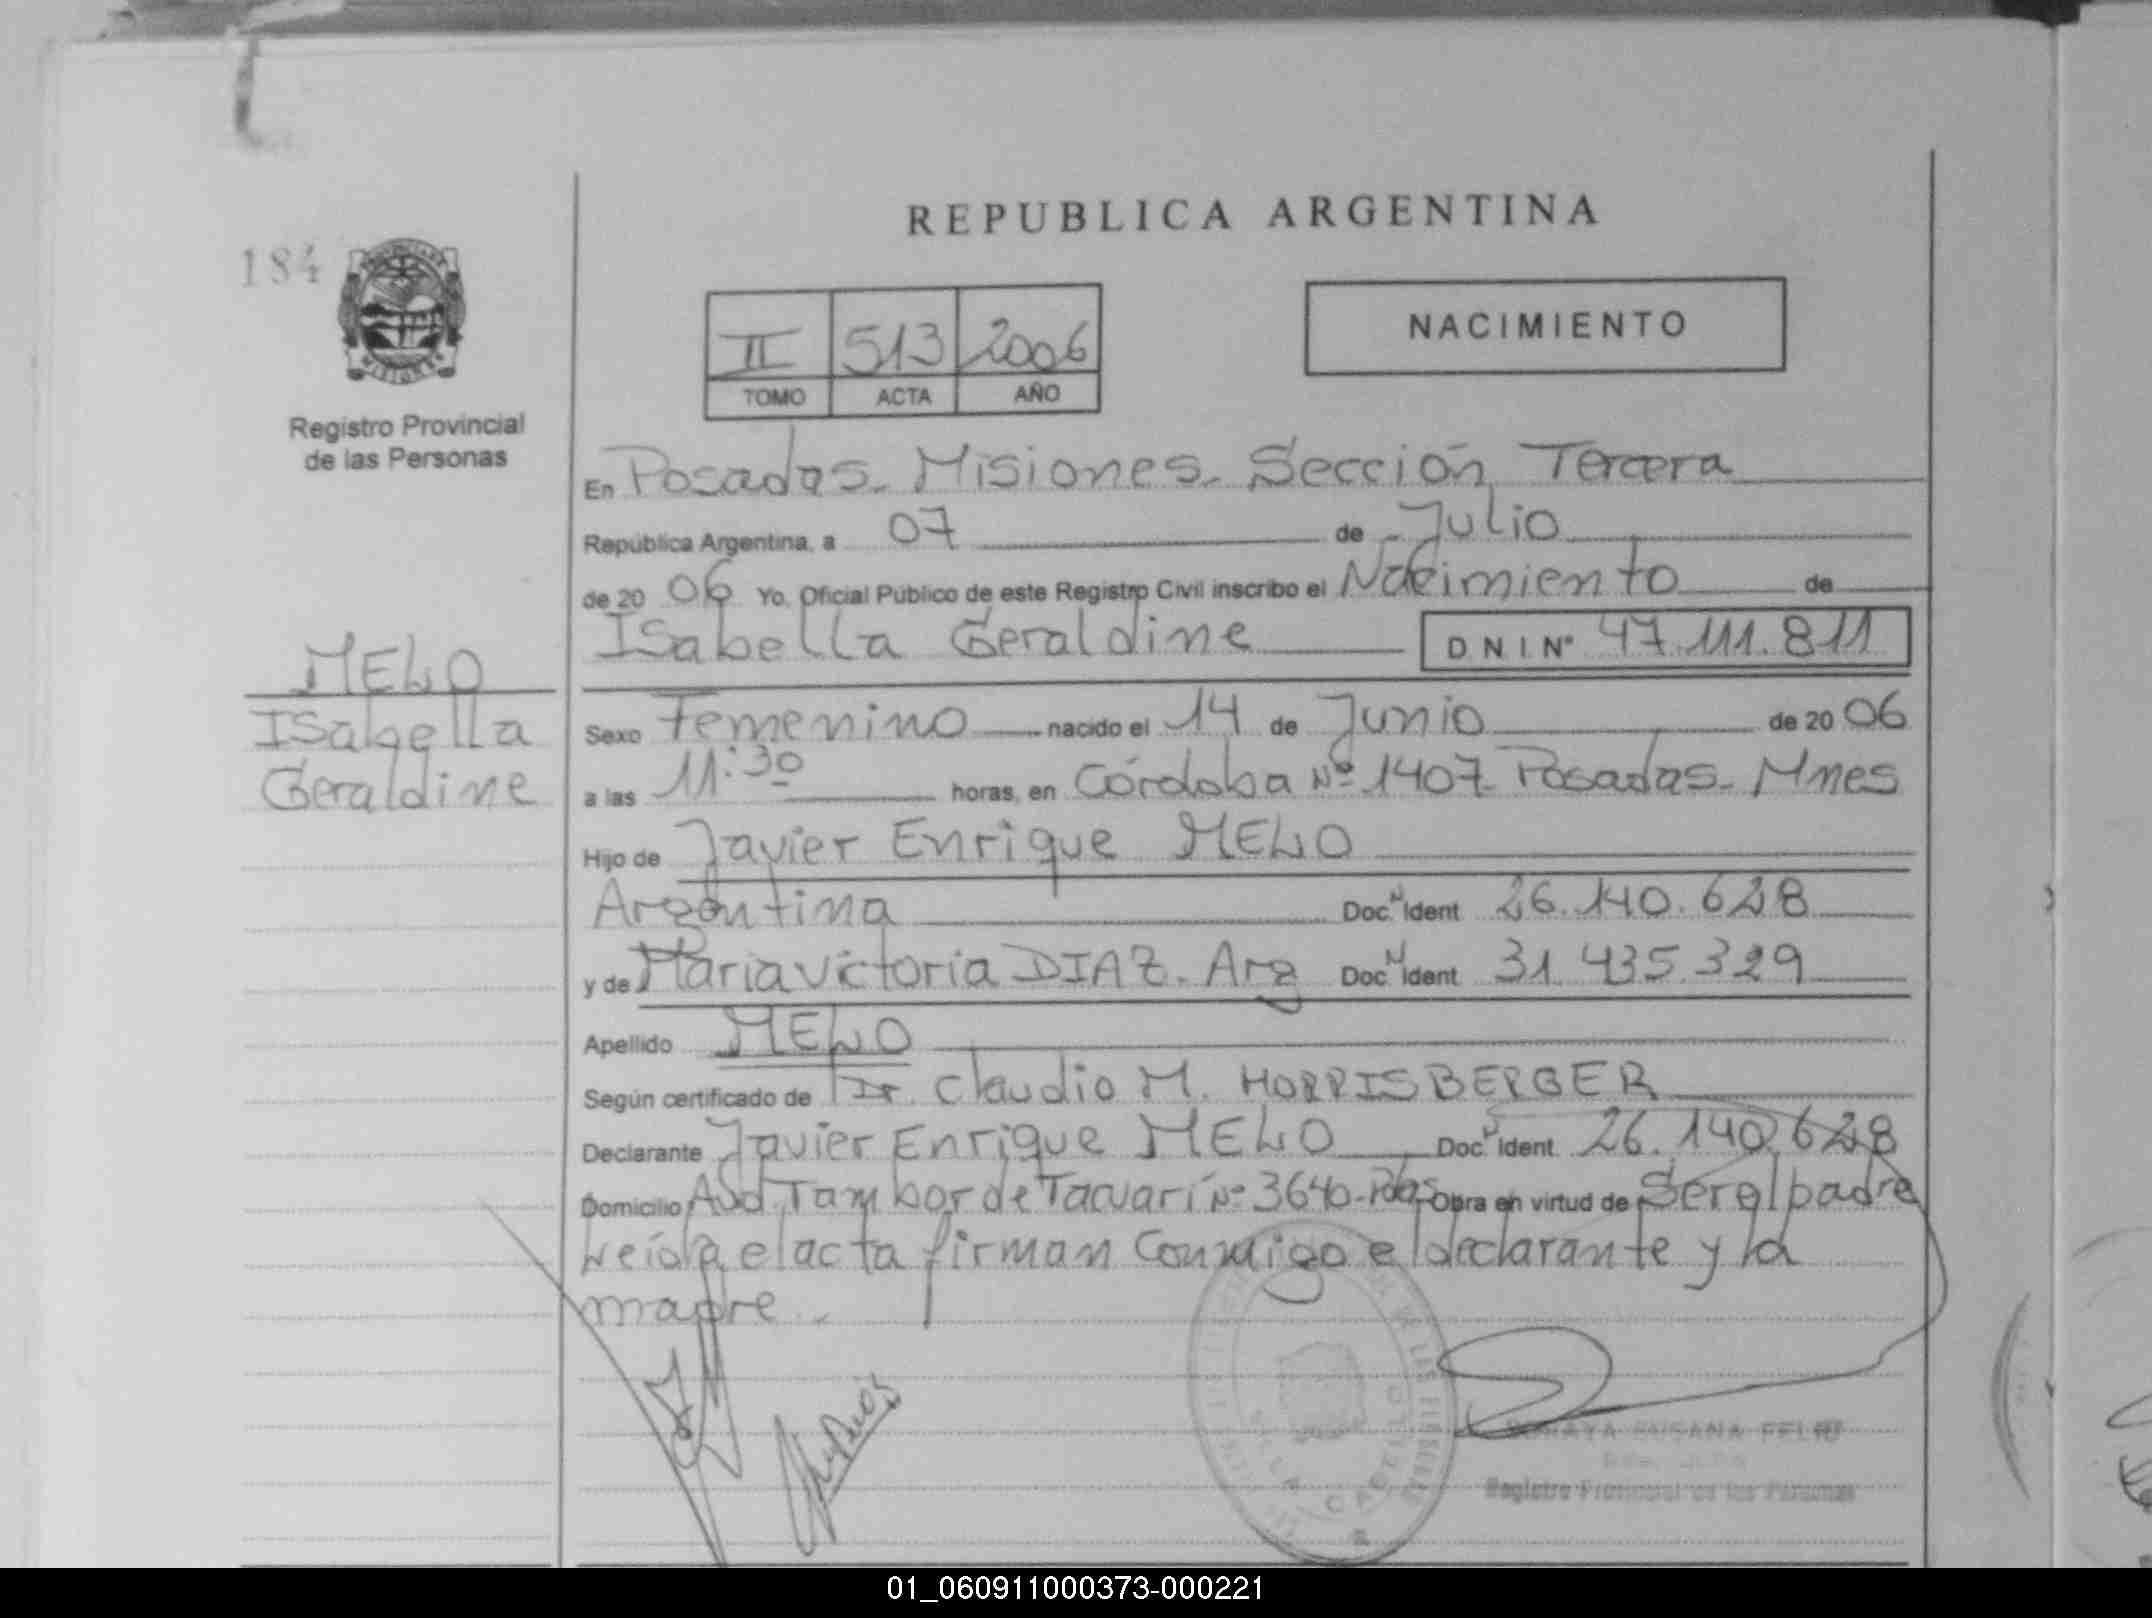 REPUBLICA ARGENTINA
184
II 513 2006
TOMO ACTA AÑO
NACIMIENTO
Registro Provincial
de las Personas
MELO
Isabella
Geraldine
En Posadas. Misiones. Sección Tercera
República Argentina, a 07 de Julio
de 20 06 Yo, Oficial Público de este Registro Civil inscribo el Nacimiento de
Isabella Geraldine D N I. Nº 47.111.811
Sexo Femenino nacido el 14 de Junio de 20 06
a las 11:30 horas, en Córdoba Nº 1407. Posadas. Mnes
Hijo de Javier Enrique MELO
Argentina Doc. Ident 26.140.628
y de Maria Victoria DIAZ. Arg Doc. Ident 31.435.329
Apellido MELO
Según certificado de Dr. Claudio M. HORRISBERGER
Declarante Javier Enrique MELO Doc. Ident. 26.140.628
Domicilio Avd. Tambor de Tacuarí Nº 3640-Pdas Obra en virtud de Ser el padre
Leída el acta firman Conmigo el declarante y la
madre.
SUSANA FELIU
Registro Provincial de las Personas
01_060911000373-000221